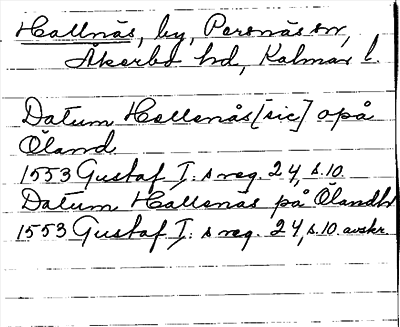 Hallnäs, by, Persnäs sn,
Åkerbo hd, Kalmar l.
Datum Hallenås [sic] opå
Öland
1553 Gustaf I:s reg. 24, s.10.
Datum Hallenäs på Ölandh
1553 Gustaf I:s reg. 24, s.10. avskr.